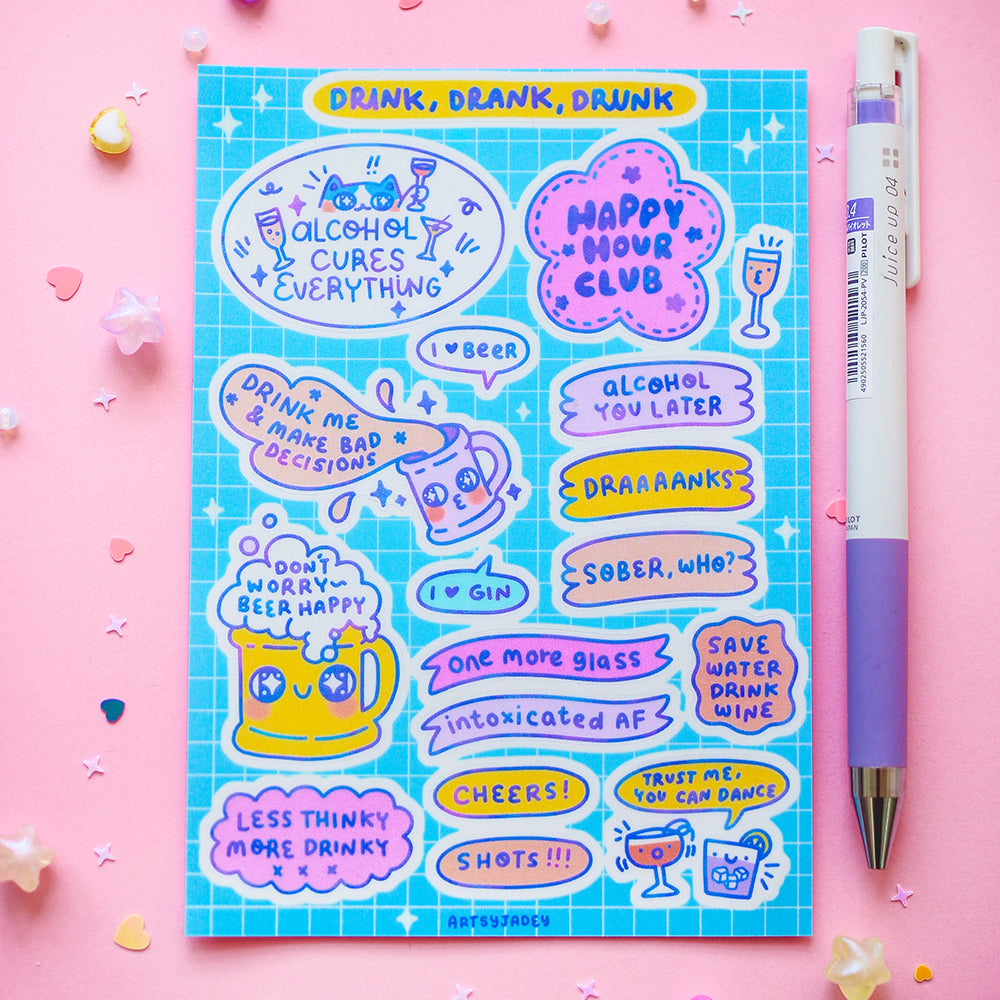 DRINK, DRANK, DRUNK
ALCOHOL
CURES
EVERYTHING
HAPPY
HOUR
CLUB
I ♥ BEER
DRINK ME
& MAKE BAD
DECISIONS
ALCOHOL
YOU LATER
DRAAAANKS
SOBER, WHO?
DON'T
WORRY~
BEER HAPPY
I ♥ GIN
one more glass
intoxicated AF
SAVE
WATER
DRINK
WINE
LESS THINKY
MORE DRINKY
x x x
CHEERS!
SHOTS!!!
TRUST ME,
YOU CAN DANCE
ARTSYJADEY
Juice up 04
0.4
バイオレット
LJP-20S4-PV 200 PILOT
4902505521560
PILOT
JAPAN